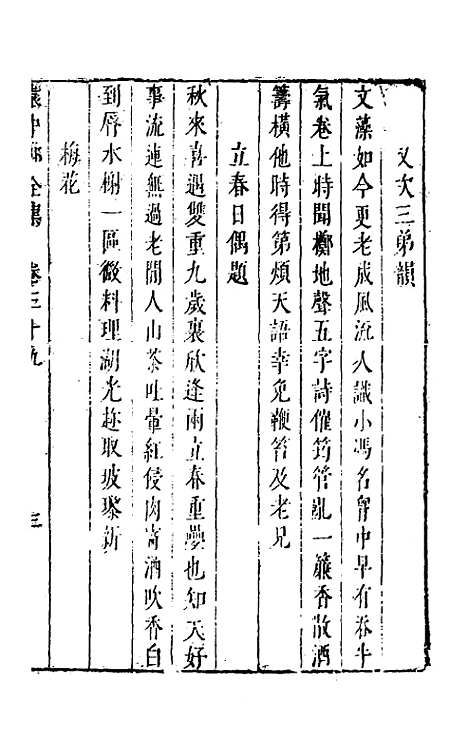 又次三弟韻
文藻如今更老成風流人識小馮名胷中早有吞牛
氣卷上時聞擲地聲五字詩催筠管亂一簾香散酒
籌橫他時得第煩天語幸免鞭笞及老兄
立春日偶題
秋來喜遇雙重九歲裏欣逢兩立春重疊也知天好
事流連無過老閒人山茶吐暈紅侵肉寄酒吹香白
到唇水榭一區微料理湖光趂取玻瓈新
梅花
袁中郎全集 卷三十九 三